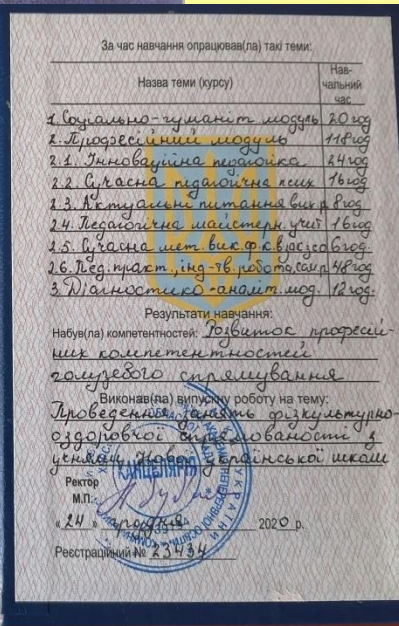 За час навчання опрацював(ла) такі теми:
Назва теми (курсу) Нав-
чальний
час
1. Соціально-гуманіт модуль 20 год
2. Професійний модуль 118 год
2.1. Інноваційна педагогіка 24 год
2.2. Сучасна педагогічна псих 16 год
2.3. Актуальні питання вик 8 год
2.4. Педагогічна майстерн. учит 16 год
2.5. Сучасна мет. вик. ф.к 6 год.
2.6. Пед. практ., інд-тв. робота, сам.р 48 год
3. Діагностико-аналіт. мод. 12 год.
Результати навчання:
Набув(ла) компетентностей: Розвиток професій-
них компетентностей
галузевого спрямування
Виконав(ла) випускну роботу на тему:
Проведення занять фізкультурно-
оздоровчої спрямованості з
учнями Нової української школи
Ректор
М.П.
КАНЦЕЛЯРІЯ
«24» грудня 2020 р.
Реєстраційний № 23434